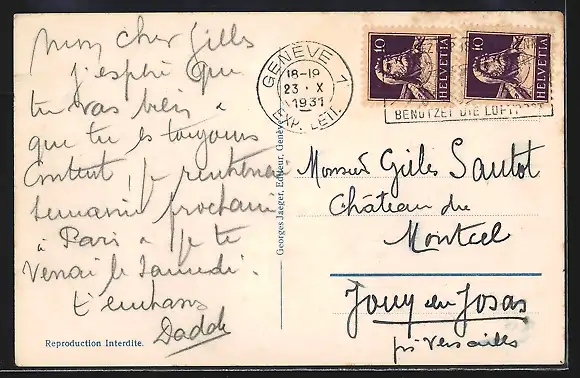 Mon cher Gilles
j'espère que
tu vas bien &
que tu es toujours
content, je rentrerai
semaine prochaine
à Paris & je te
verrai le samedi.
t'embrass
Daddy
Reproduction Interdite.
Georges Jaeger, Editeur, Genève
GENÈVE 1
18-19
23 · X
1931
EXP. LETT.
10 HELVETIA
10 HELVETIA
BENÜTZET DIE LUFTPOST
Monsieur Gilles Sautot
Château du
Montcel
Jouy en Josas
près Versailles